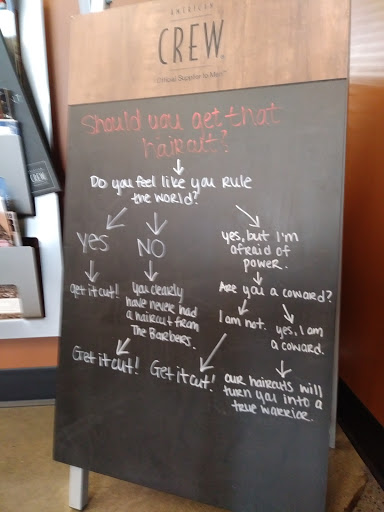 AMERICAN
CREW
Official Supplier to Men
Should you get that
haircut?
Do you feel like you rule
the world?
yes
NO
yes, but I'm
afraid of
power.
get it cut!
you clearly
have never had
a haircut from
The Barbers.
Are you a coward?
I am not.
yes, I am
a coward.
Get it cut!
Get it cut!
our haircuts will
turn you into a
true warrior.
CREW